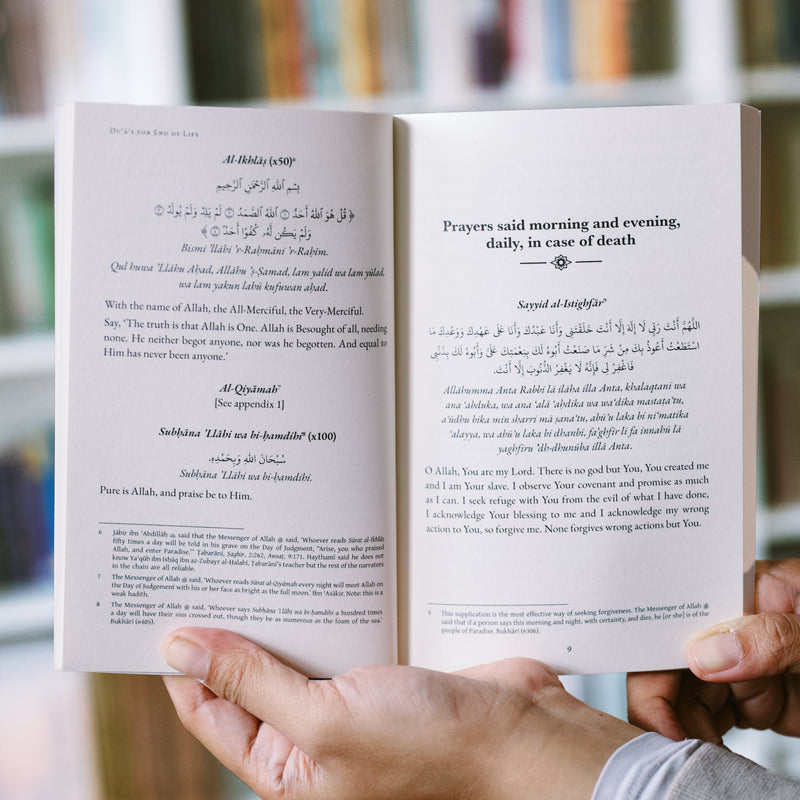 Du‘ā’s for End of Life
Al-Ikhlāṣ (x50)⁶
بِسْمِ اللهِ الرَّحْمٰنِ الرَّحِيْمِ
﴿ قُلْ هُوَ اللهُ أَحَدٌ ۝١ اللهُ الصَّمَدُ ۝٢ لَمْ يَلِدْ وَلَمْ يُولَدْ ۝٣
وَلَمْ يَكُن لَّهُۥ كُفُوًا أَحَدٌ ۝٤ ﴾
Bismi ’llāhi ’r-Raḥmāni ’r-Raḥīm.
Qul huwa ’Llāhu Aḥad, Allāhu ’ṣ-Ṣamad, lam yalid wa lam yūlad,
wa lam yakun lahū kufuwan aḥad.
With the name of Allah, the All-Merciful, the Very-Merciful.
Say, ‘The truth is that Allah is One. Allah is Besought of all, needing
none. He neither begot anyone, nor was he begotten. And equal to
Him has never been anyone.’
Al-Qiyāmah⁷
[See appendix 1]
Subḥāna ’Llāhi wa bi-ḥamdihi⁸ (x100)
سُبْحَانَ اللهِ وَبِحَمْدِهِ.
Subḥāna ’Llāhi wa bi-ḥamdihi.
Pure is Allah, and praise be to Him.
6 Jābir ibn ‘Abdillāh ؓ said that the Messenger of Allah ﷺ said, ‘Whoever reads Sūrat al-Ikhlāṣ
fifty times a day will be told in his grave on the Day of Judgment, “Arise, you who praised
Allah, and enter Paradise.”’ Ṭabarānī, Ṣaghīr, 2:262, Awsaṭ, 9:171. Haythamī said he does not
know Ya‘qūb ibn Isḥāq ibn az-Zubayr al-Ḥalabī, Ṭabarānī’s teacher but the rest of the narrators
in the chain are all reliable.
7 The Messenger of Allah ﷺ said, ‘Whoever reads Sūrat al-Qiyāmah every night will meet Allah on
the Day of Judgement with his or her face as bright as the full moon.’ Ibn ‘Asākir. Note: this is a
weak hadith.
8 The Messenger of Allah ﷺ said, ‘Whoever says Subḥāna ’Llāhi wa bi-ḥamdihi a hundred times
a day will have their sins crossed out, though they be as numerous as the foam of the sea.’
Bukhārī (6405).
Prayers said morning and evening,
daily, in case of death
Sayyid al-Istighfār⁹
اللّٰهُمَّ أَنْتَ رَبِّي لَا إِلٰهَ إِلَّا أَنْتَ خَلَقْتَنِي وَأَنَا عَبْدُكَ وَأَنَا عَلَى عَهْدِكَ وَوَعْدِكَ مَا
اسْتَطَعْتُ أَعُوذُ بِكَ مِنْ شَرِّ مَا صَنَعْتُ أَبُوءُ لَكَ بِنِعْمَتِكَ عَلَيَّ وَأَبُوءُ لَكَ بِذَنْبِي
فَاغْفِرْ لِي فَإِنَّهُ لَا يَغْفِرُ الذُّنُوبَ إِلَّا أَنْتَ.
Allāhumma Anta Rabbi lā ilāha illa Anta, khalaqtani wa
ana ‘abduka, wa ana ‘alā ‘aḥdika wa wa‘dika mastaṭa‘tu,
a‘ūdhu bika min sharri mā ṣana‘tu, abū’u laka bi ni‘matika
‘alayya, wa abū’u laka bi dhanbi, fa’ghfir li fa innahū lā
yaghfiru ’dh-dhunūba illa Anta.
O Allah, You are my Lord. There is no god but You, You created me
and I am Your slave. I observe Your covenant and promise as much
as I can. I seek refuge with You from the evil of what I have done,
I acknowledge Your blessing to me and I acknowledge my wrong
action to You, so forgive me. None forgives wrong actions but You.
9 This supplication is the most effective way of seeking forgiveness. The Messenger of Allah ﷺ
said that if a person says this morning and night, with certainty, and dies, he [or she] is of the
people of Paradise. Bukhārī (6306).
9